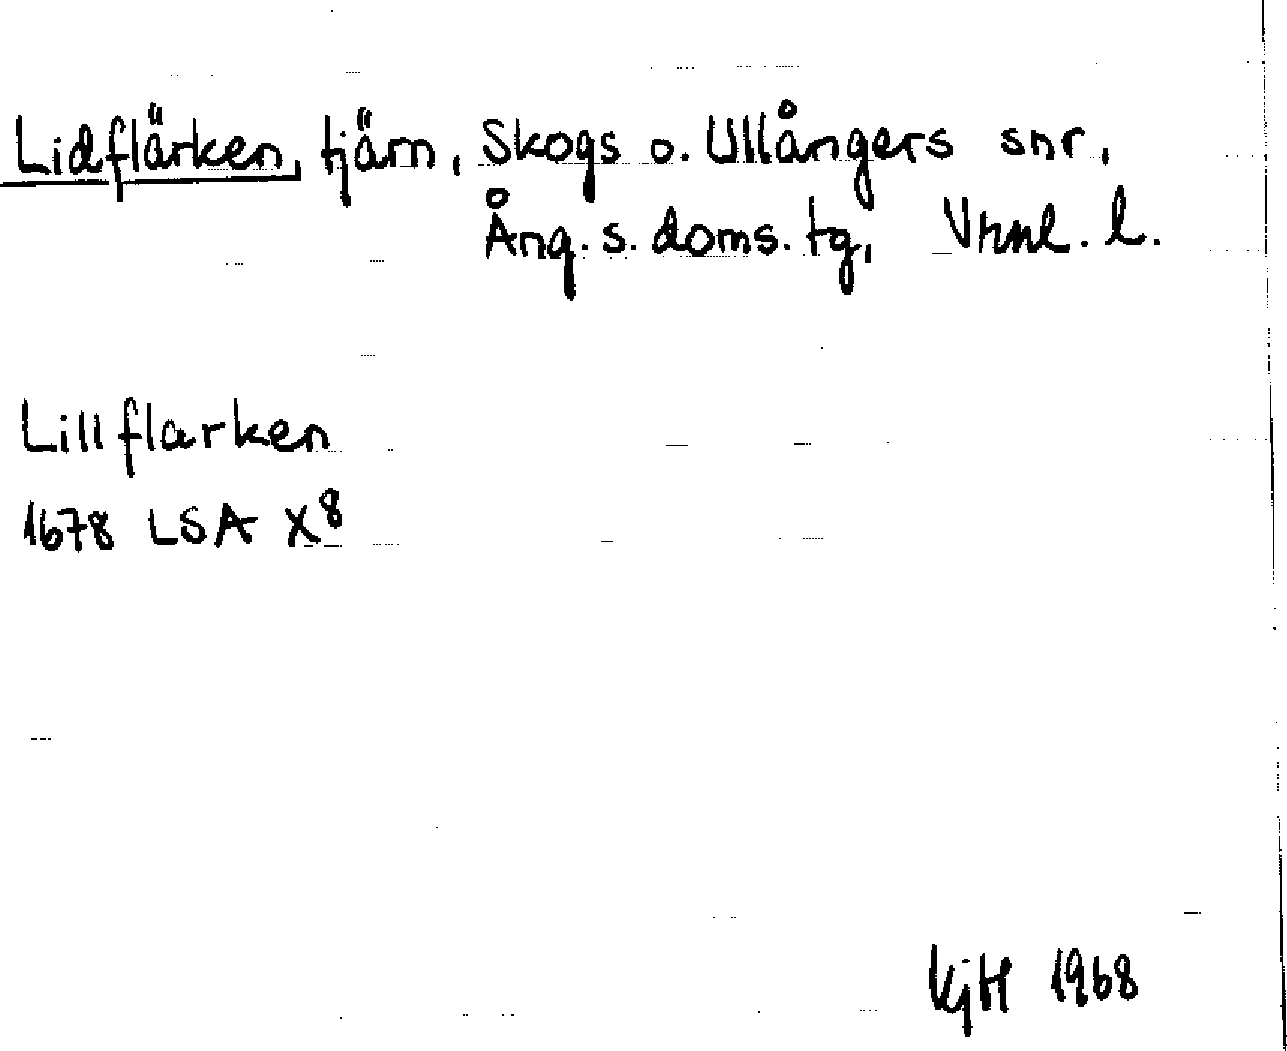 Lidflärken, tjärn, Skogs o. Ullångers snr,
Ång. s. doms. tg, Vrnl. l.
Lillflarken
1678 LSA X8
KjH 1968